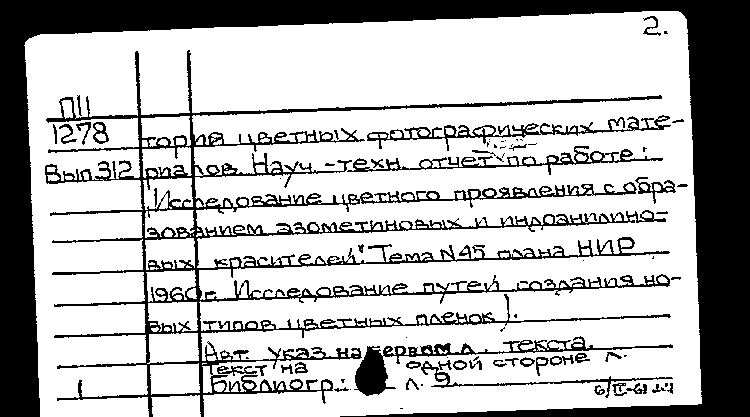 2.
П11
1278 тория цветных фотографических мате-
Вып.312 риалов. Науч.-техн. отчет по работе:
"Исследование цветного проявления с обра-
зованием азометиновых и индоанилино-
вых красителей". Тема N45 плана НИР
1960г. Исследование путей создания но-
вых типов цветных пленок).
Авт. указ на первом л. текста.
Текст на одной стороне л.
1 Библиогр.: л. 9.